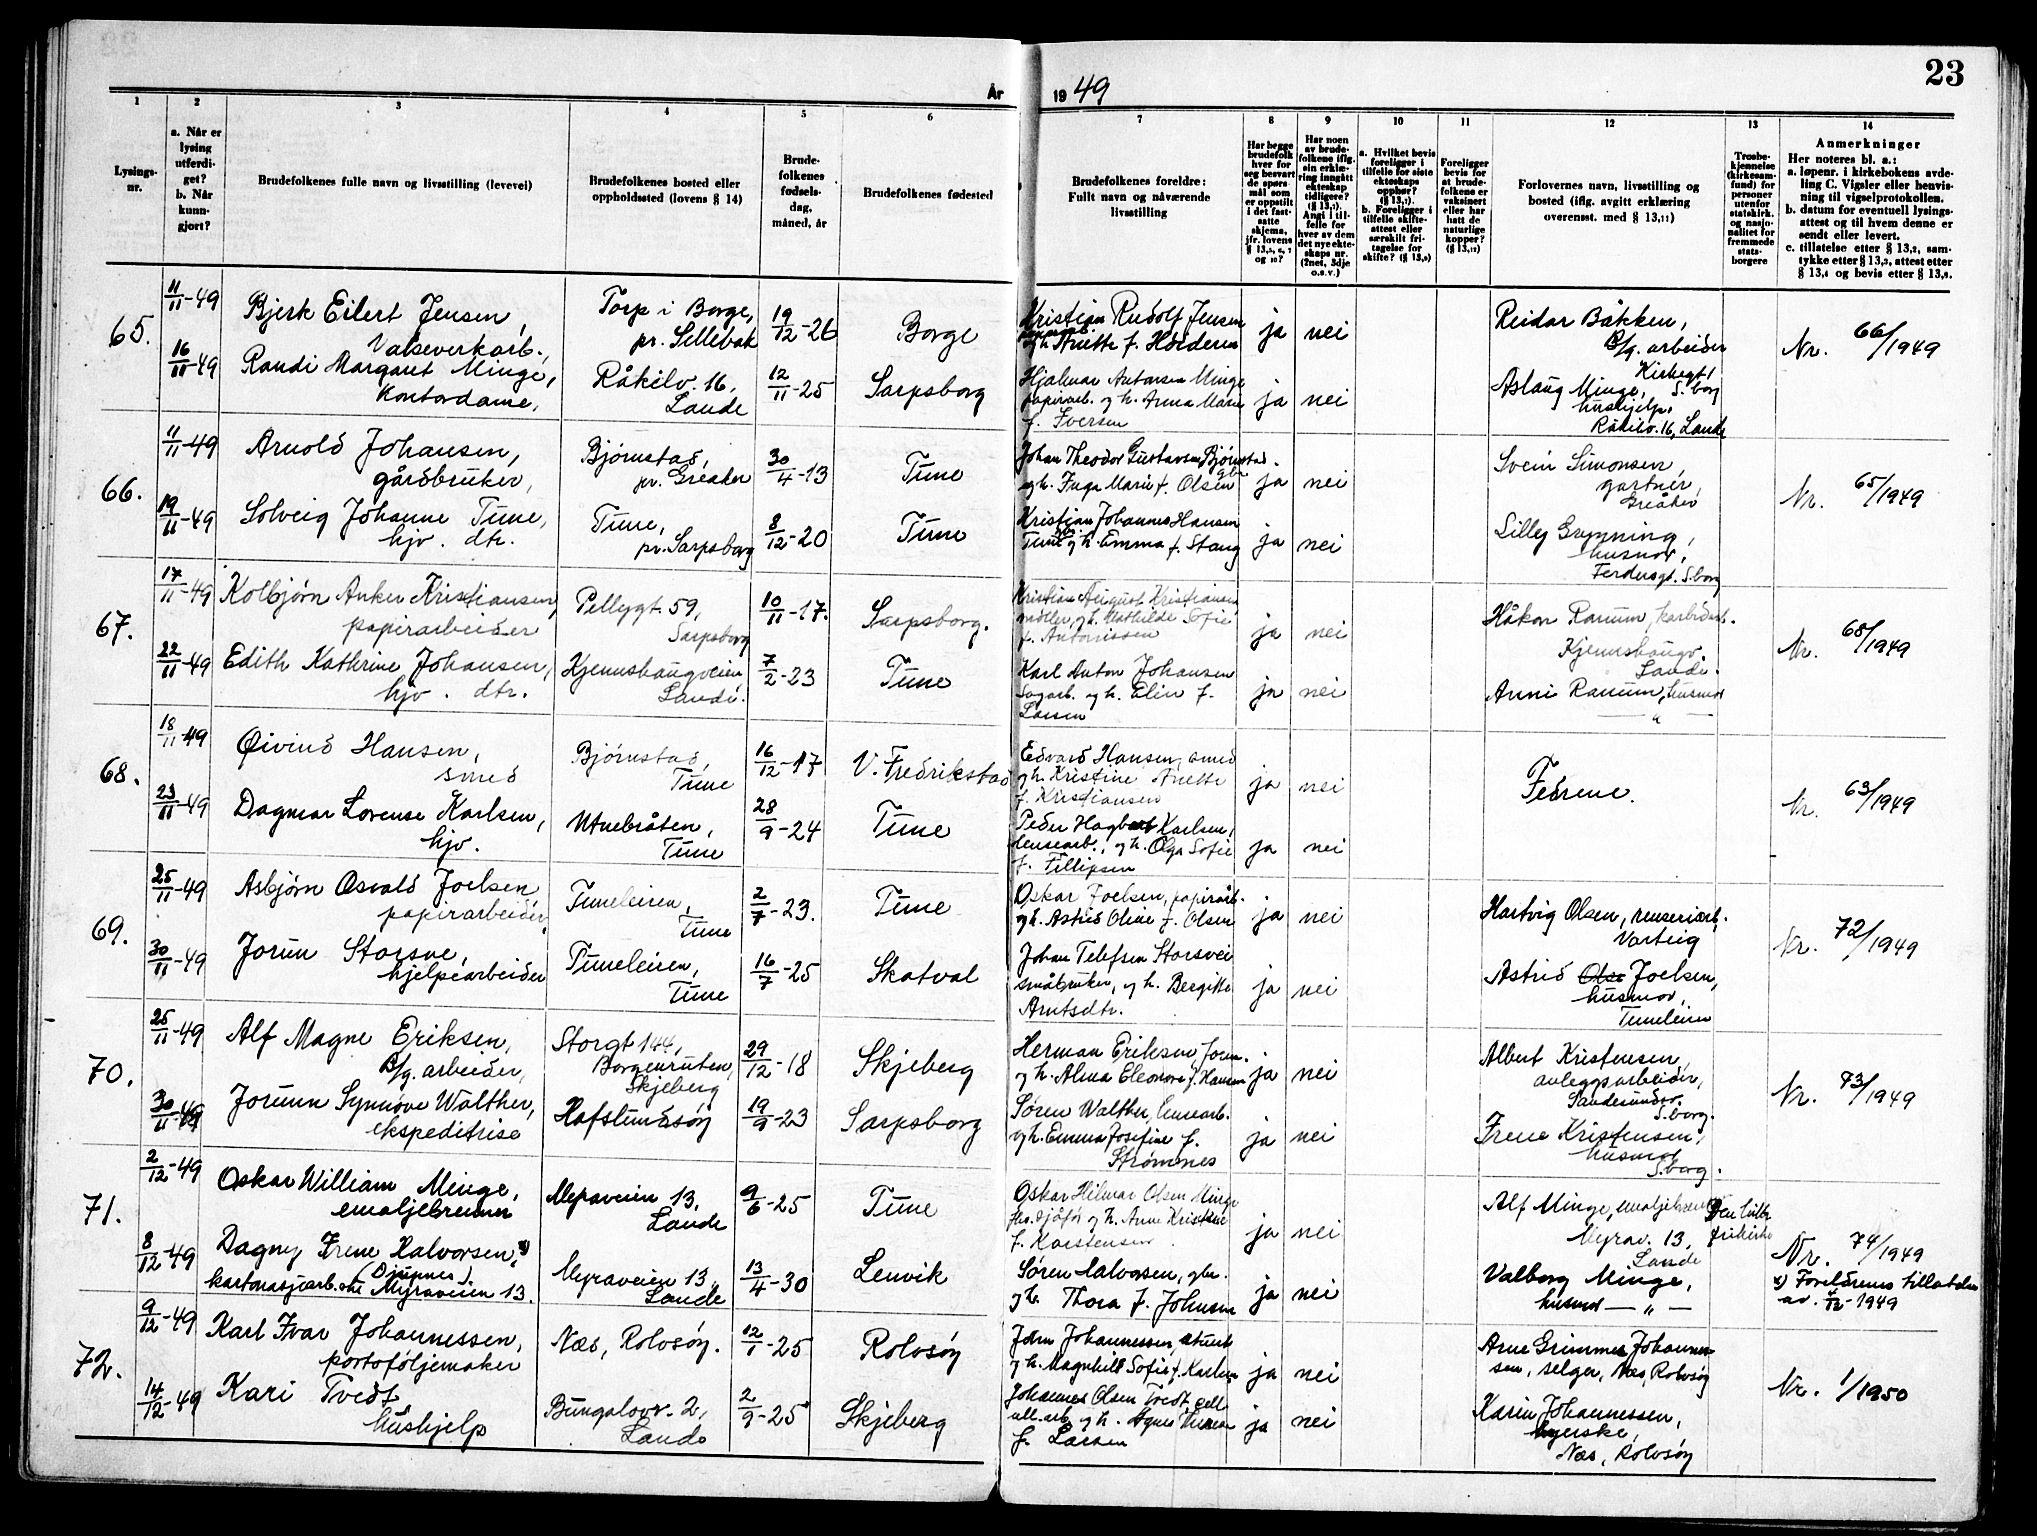 23
År 1949
1 2 3 4 5 6 7 8 9 10 11 12 13 14
Lysings-
nr.
a. Når er
lysing
utferdi-
get?
b. Når
kunn-
gjort?
Brudefolkenes fulle navn og livsstilling (levevei)
Brudefolkenes bosted eller
oppholdssted (lovens § 14)
Brude-
folkenes
fødsels-
dag,
måned, år
Brudefolkenes fødested
Brudefolkenes foreldre:
Fullt navn og nåværende
livsstilling
Har begge
brudefolk
hver for
seg besvart
de spørs-
mål som
er oppstilt
i det fast-
satte
skjema,
jfr. lovens
og 10?
Har noen
av brude-
folkene iflg.
sin erklæ-
ring inngått
ekteskap
tidligere?
(§ 13,1).
Angi i til-
felle for
hver av dem
det nye ekte-
skaps nr.
(2net, 3dje
o.s.v.)
a. Hvilket bevis
foreligger i
tilfelle for siste
ekteskaps
opphør?
(§ 13,7).
b. Foreligger i
tilfelle skifte-
attest eller
særskilt fri-
tagelse for
skifte? (§ 13,9)
Foreligger
bevis for
at brude-
folkene er
vaksinert
eller har
hatt de
naturlige
kopper?
(§ 13,12)
Forlovernes navn, livsstilling og
bosted (iflg. avgitt erklæring
overensst. med § 13,11)
Trosbe-
kjennelse
(kirkesam-
fund) for
personer
utenfor
statskirk.
og nasjo-
nalitet for
fremmede
stats-
borgere
Anmerkninger
Her noteres bl. a.:
a. løpenr. i kirkebokens avde-
ling C. Vigsler eller henvis-
ning til vigselprotokollen.
b. datum for eventuell lysings-
attest og til hvem denne er
sendt eller levert.
c. tillatelse etter § 13,2, sam-
tykke etter § 13,3, attest etter
§ 13,4 og bevis etter § 13,8.
65.
11/11-49 Bjerk Eilert Jensen, Torp i Borge, 19/12-26 Borge Kristian Rudolf Jensen ja nei Reidar Bakken,
Valseverkarb., pr. Sellebak og h. Anette f. arbeider
Kirkegt. S.borg
16/11-49 Randi Margaret Minge, Råkilv. 16, 12/11-25 Sarpsborg Hjalmar Antonsen Minge ja nei Aslaug Minge,
Kontordame, Lande papirarb. og h. Anna Marie hushjelp,
f. Iversen Råkilv. 16, Lande
Nr. 66/1949
66.
11/11-49 Arnold Johansen, Bjørnstad, 30/4-13 Tune Johan Theodor Gustavsen Bjørnstad ja nei Svein Simonsen,
gårdbruker, pr. Greaker og h. Inga Marie f. Olsen gartner,
Greåker
19/11-49 Solveig Johanne Tune, Tune, 8/12-20 Tune Kristian Johannes Hansen ja nei Lilley Grynning,
hjv. dtr. pr. Sarpsborg Tune og h. Emma f. Stang husmor,
Ferdersgt. S.borg
Nr. 65/1949
67.
17/11-49 Kolbjørn Anker Kristiansen, Pellygt. 59, 10/11-17. Sarpsborg. Kristian August Kristiansen ja nei Håkon Ranum, karbidarb.
papirarbeider Sarpsborg møller, og h. Mathilde Sofie Kjennshaugv.
f. Antonissen Lande.
22/11-49 Edith Kathrine Johansen, Kjennshaugveien 7/2-23 Tune Karl Anton Johansen ja nei Anni Ranum, husmor
hjv. dtr. Lande. Sagarb. og h. Elin f. — " —
Larsen
Nr. 68/1949
68.
18/11-49 Øivind Hansen, Bjørnstad, 16/12-17 V. Fredrikstad Edvard Hansen, smed ja nei Fedrene.
smed Tune og h. Kristine Anette
f. Kristiansen
23/11-49 Dagmar Lovense Karlsen, Utnebråten, 28/9-24 Tune Peder Hagbart Karlsen, ja nei
hjv. Tune lensearb., og h. Olga Sofie
f. Fillipsen
Nr. 63/1949
69.
25/11-49 Asbjørn Osvald Joelsen Tuneleiren, 2/7-23. Tune Oskar Joelsen, papirarb. ja nei Hartvig Olsen, renseriarb.
papirarbeider, Tune og h. Astrid Oline f. Olsen Varteig
30/11-49 Jorun Storsve, Tuneleiren, 16/7-25 Skatval Johan Telefsen Storsvei ja nei Astrid Joelsen,
hjelpearbeider Tune småbruker, og h. Bergitte husmor,
Arntsdtr. Tuneleiren
Nr. 72/1949
70.
25/11-49 Alf Magne Eriksen, Storgt 144, 29/12-18 Skjeberg Herman Eriksen, form. ja nei Albert Kristensen,
B/g. arbeider, Borgenruten, og h. Alma Eleonore f. Hansen anleggsarbeider,
Skjeberg Sandesundsv. S.borg.
30/11-49 Jorunn Synnøve Walther, Hafslundsøy 19/9-23 Sarpsborg Søren Walther, lensearb. ja nei Irene Kristensen,
ekspeditrise og h. Emma Josefine f. husmor
Strømnes S.borg.
Nr. 73/1949
71.
2/12-49 Oskar William Minge, Myraveien 13, 9/6-25 Tune Oskar Hilmar Olsen Minge ja nei Alf Minge, emaljebrenner
emaljebrenner Lande og h. Anne Kristine Myrav. 13,
f. Karstensen Lande
8/12-49 Dagny Irene Halvorsen, x) Myraveien 13, 13/4-30 Lenvik Søren Halvorsen, gbr. ja nei Valborg Minge,
(Djupnes). Lande og h. Thora f. Johnsen husmor — " —
kartonasjearb. Myraveien 13.
Den luth. frikirke
Nr. 74/1949
x) Foreldrenes tillatelse
av. 4/12-1949
72.
9/12-49 Karl Ivar Johannessen, Næs, Rolvsøy. 12/1-25 Rolvsøy John Johannessen, ja nei Arne Grimmes Johannes-
portoføljemaker og h. Magnhild Sofie f. Karlsen sen, selger, Næs, Rolvsøy
14/12-49 Kari Tvedt Bungalovv. 2, 2/9-25 Skjeberg Johannes Olsen Tvedt, cell- ja nei Karin Johannessen,
hushjelp Lande ull.arb. og h. Agnes
f. Larsen Næs, Rolvsøy
Nr. 1/1950